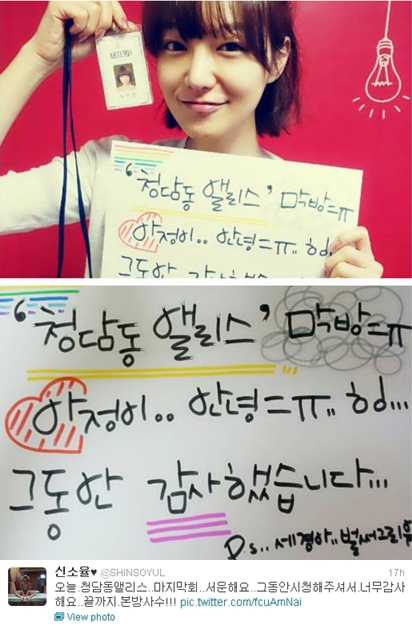 ARTEMIS
'청담동 앨리스' 막방=ㅠ
아정이.. 안녕=ㅠ.. 헝.
그동안 감사했습니
'청담동 앨리스' 막방=ㅠ
아정이.. 안녕=ㅠ.. 헝...
그동안 감사했습니다...
P.s.. 세경아.. 벌써그리워
신소율♥ @SHINSOYUL 17h
오늘.청담동앨리스..마지막회..서운해요..그동안시청해주셔서.너무감사
해요..끝까지.본방사수!!! pic.twitter.com/fcuAmNai
View photo